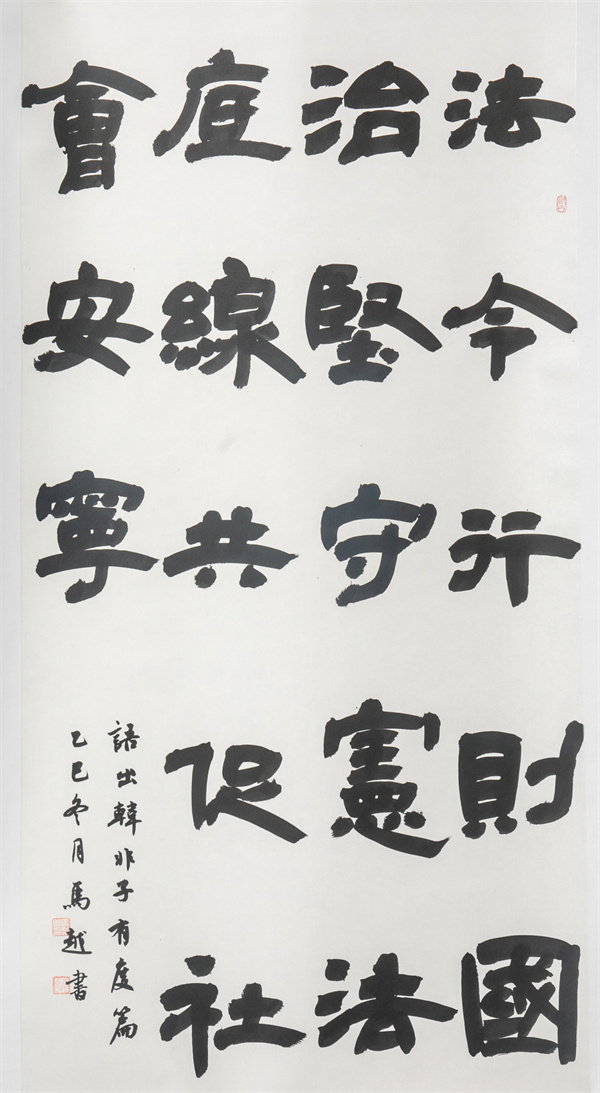 法令行則國
治堅守憲法
底線共促社
會安寧
語出韓非子有度篇
乙巳冬月馬越書